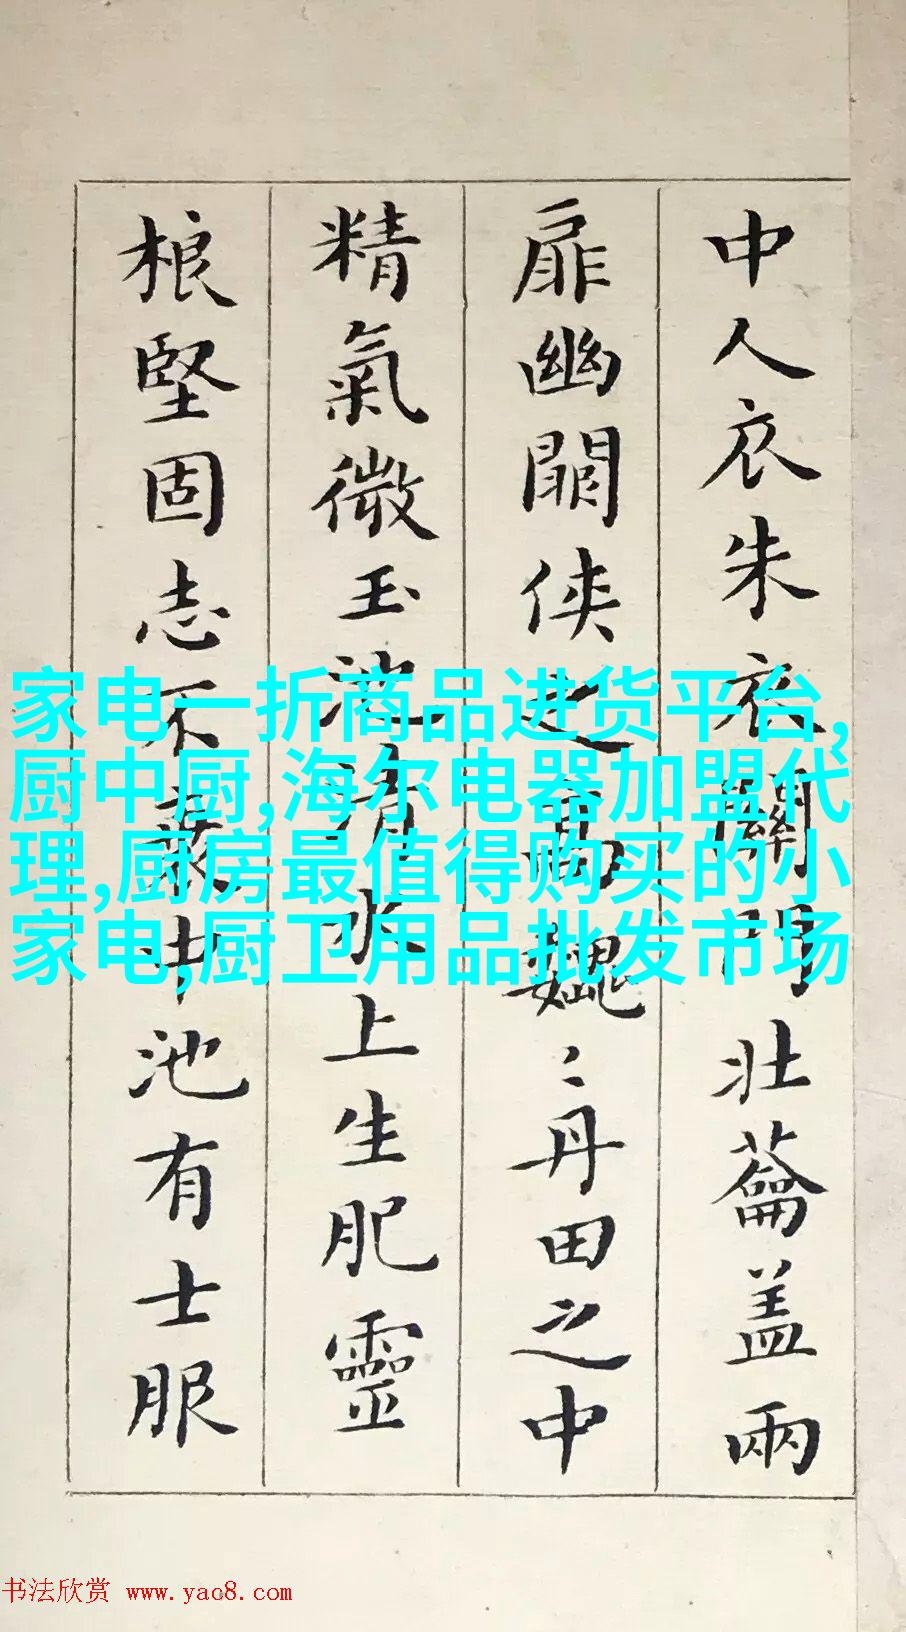 中人衣朱衣關門壮蘥盖兩
扉幽闗侠之高巍〻丹田之中
精氣微玉池清水上生肥靈
根堅固志不衰中池有士服
家电一折商品进货平台,
厨中厨,海尔电器加盟代
理,厨房最值得购买的小
家电,厨卫用品批发市场
书法欣赏 www.yac8.com